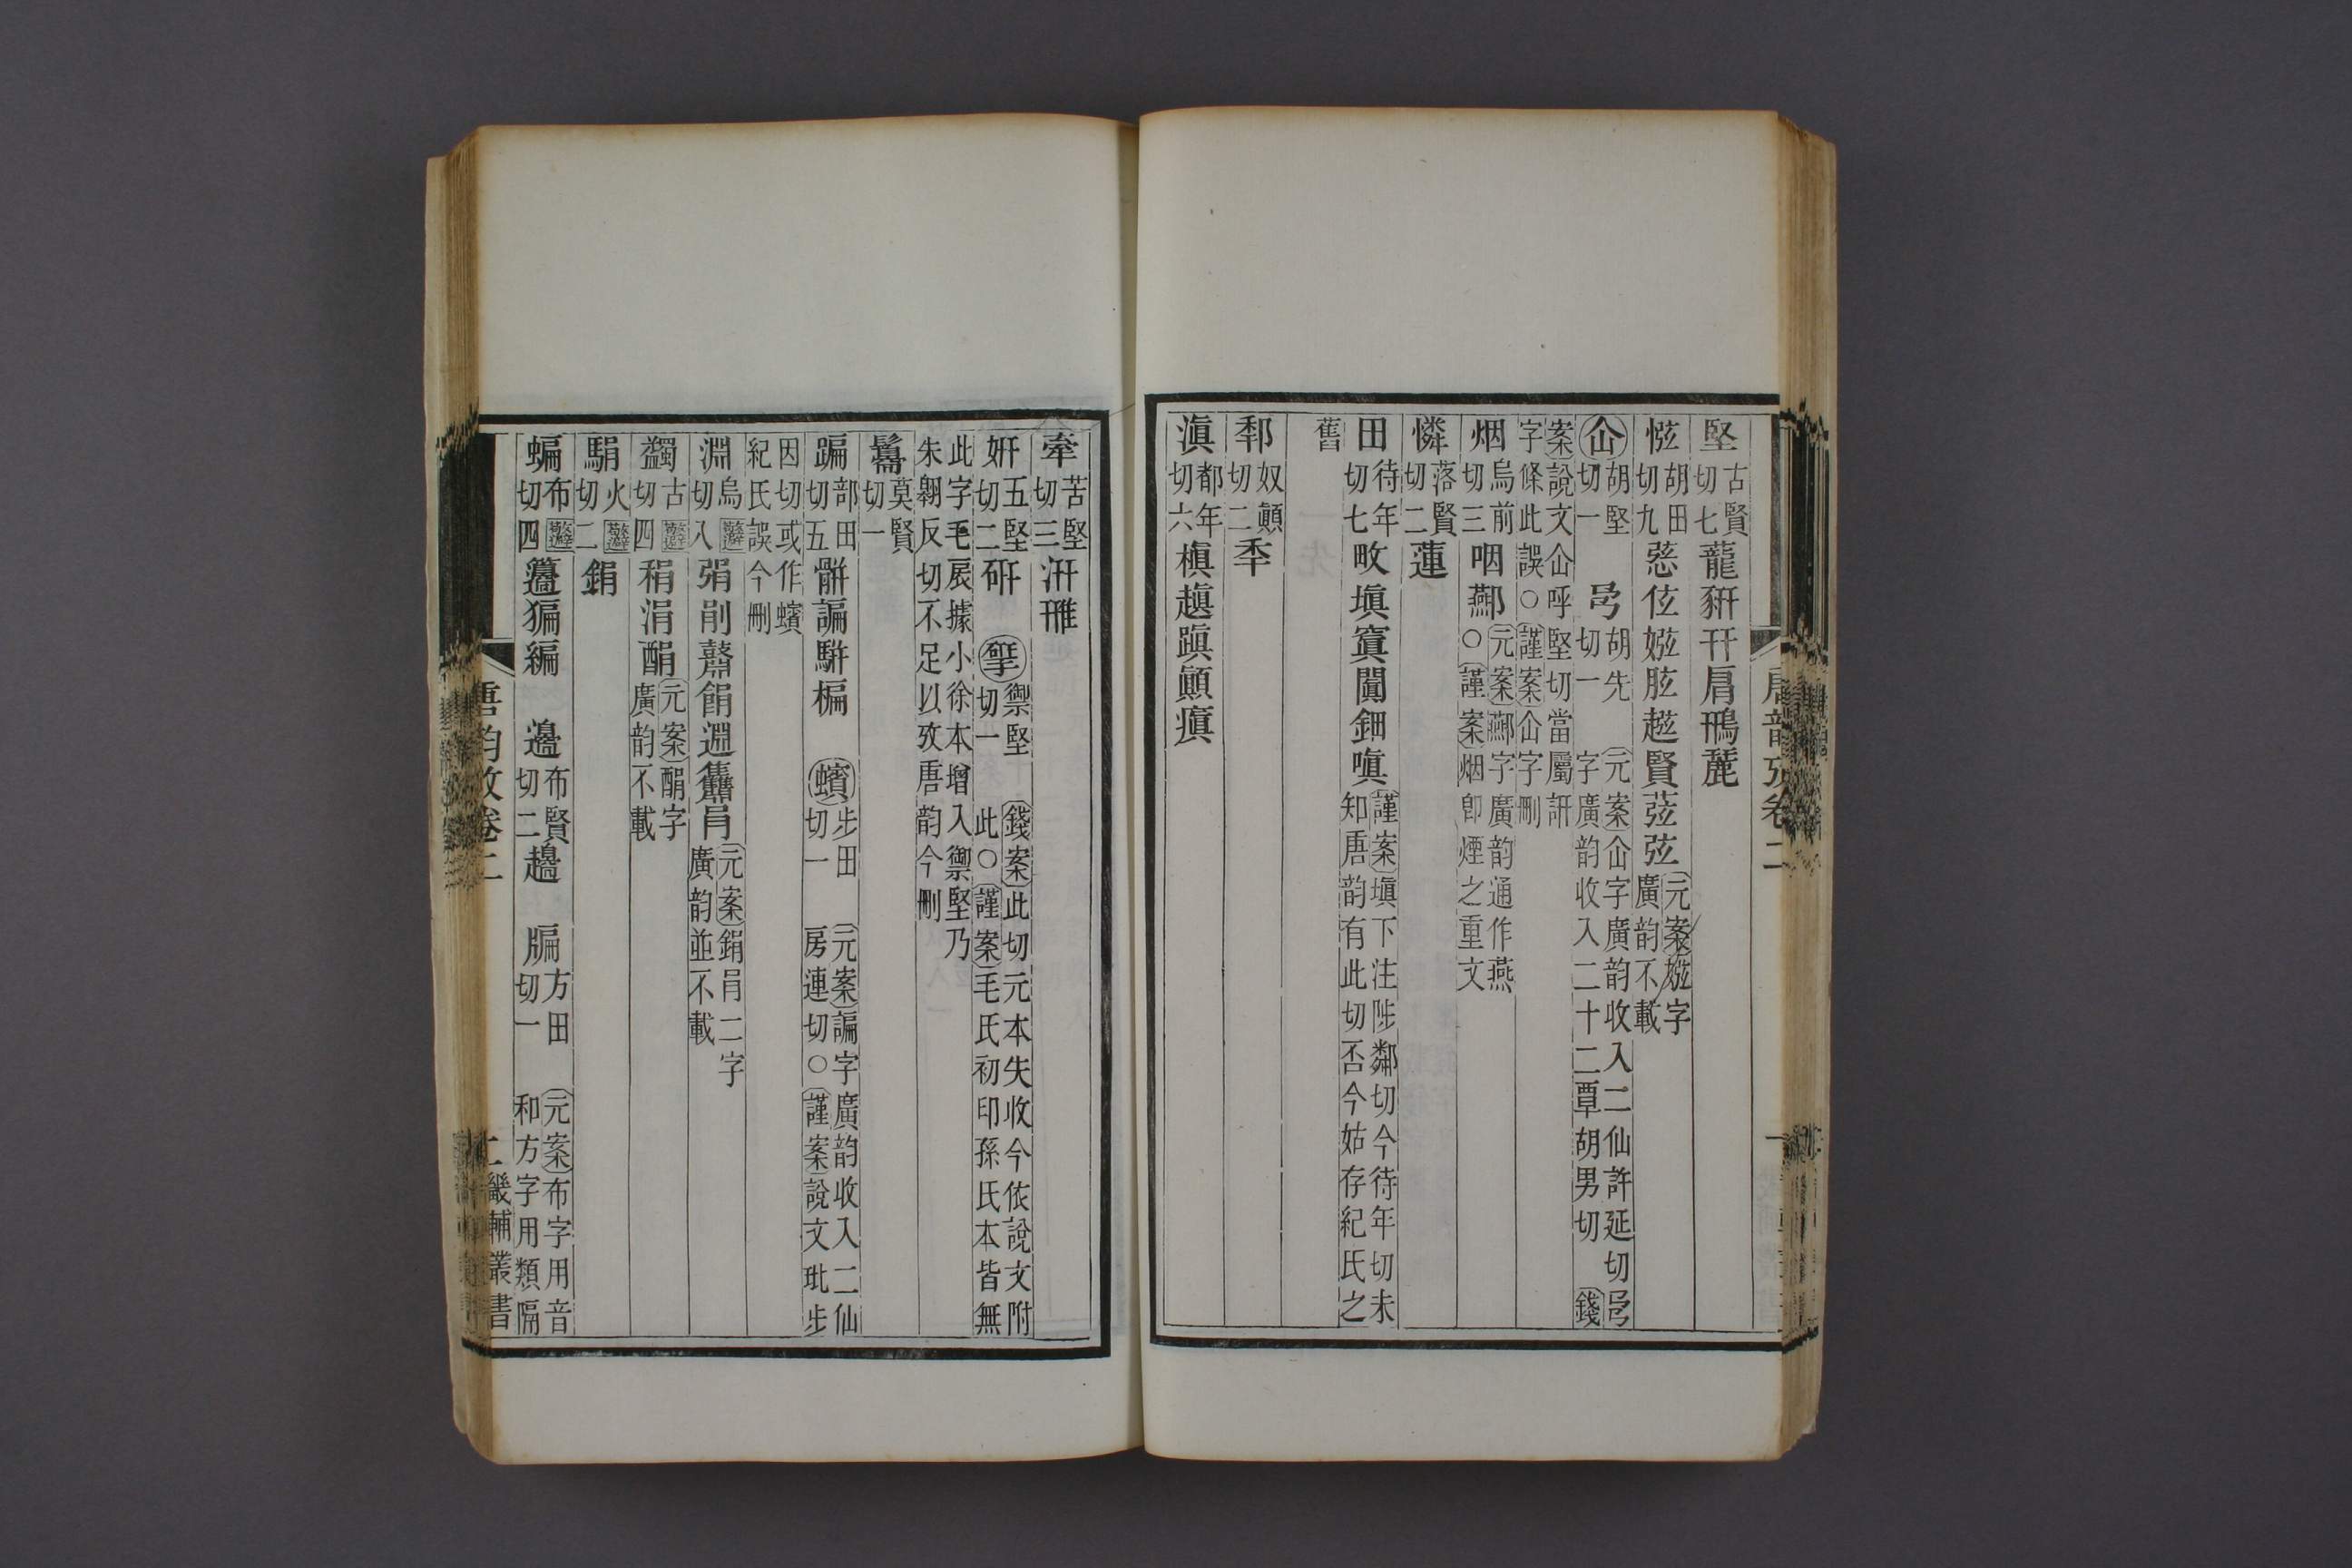 唐韵攷卷二
堅古賢切七蘢豣幵肩鳽麉
慈胡田切九慈伭娹胘𧻖賢䓔弦元案娹字廣韵不載
㕣胡堅切一 㔾胡先切一 元案㕣字廣韵收入二仙許延切㔾字廣韵收入二十二覃胡男切 錢
案說文㕣呼堅切當屬訮字條此誤○謹案㕣字刪
烟烏前切三咽酀元案酀字廣韵通作燕○謹案烟卽煙之重文
憐落賢切二蓮
田待年切七畋塡窴闐鈿嗔謹案塡下注陟鄰切今待年切未知唐韵有此切否今姑存紀氏之
舊
䄭奴顚切二秊
滇都年切六槙趚蹎顚瘨
牽苦堅切三汧雃
姸五堅切二硏 掔禦堅切一 錢案此切元本失收今依說文附此○謹案毛氏初印孫氏本皆無
此字毛扆據小徐本增入禦堅乃朱翺反切不足以攷唐韵今刪
莫賢切一
蹁部田切五骿諞騈楄 蠙步田切一 元案諞字廣韵收入二仙房連切○謹案說文玭步
因切或作蠙紀氏誤今刪
淵烏避切八弲剈鼘䬼𣶒肙元案鋗肙二字廣韵並不載
蠲古避切四稍涓酳元案酳字廣韵不載
駽火避切二鋗
蝙布避切四籩猵編 邊布賢切二趨 牑方田切一 元案布字用音和方字用類隔
唐韵攷卷二 二畿輔叢書